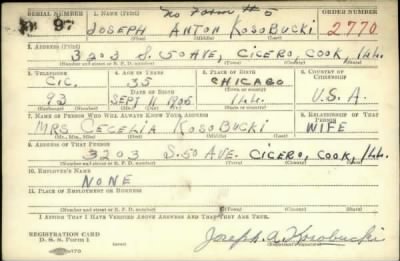 No Form # 5
1. Name (Print)
ORDER NUMBER
JOSEPH ANTON KOSOBUCKI 2770
(First) (Middle) (Last)
2. ADDRESS (Print)
3203 S. 50 AVE, CICERO, COOK, ILL.
(Number and street or R. F. D. number) (Town) (County) (State)
3. TELEPHONE 4. AGE IN YEARS 5. PLACE OF BIRTH 6. COUNTRY OF CITIZENSHIP
CIC. 35 CHICAGO
(Town or county)
93 SEPT 11 1906 ILL. U.S.A.
7. NAME OF PERSON WHO WILL ALWAYS KNOW YOUR ADDRESS 8. RELATIONSHIP OF THAT PERSON
MRS CECELIA KOSOBUCKI WIFE
(Mr., Mrs., Miss) (First) (Middle) (Last)
9. ADDRESS OF THAT PERSON
3203 S. 50 AVE. CICERO, COOK, ILL.
(Number and street or R. F. D. number) (Town) (County) (State)
10. EMPLOYER'S NAME
NONE
11. PLACE OF EMPLOYMENT OR BUSINESS
(Number and street or R. F. D. number) (Town) (County) (State)
I AFFIRM THAT I HAVE VERIFIED ABOVE ADDRESS AND THAT THEY ARE TRUE.
REGISTRATION CARD
D. S. S. Form 1
Joseph A Kosobucki